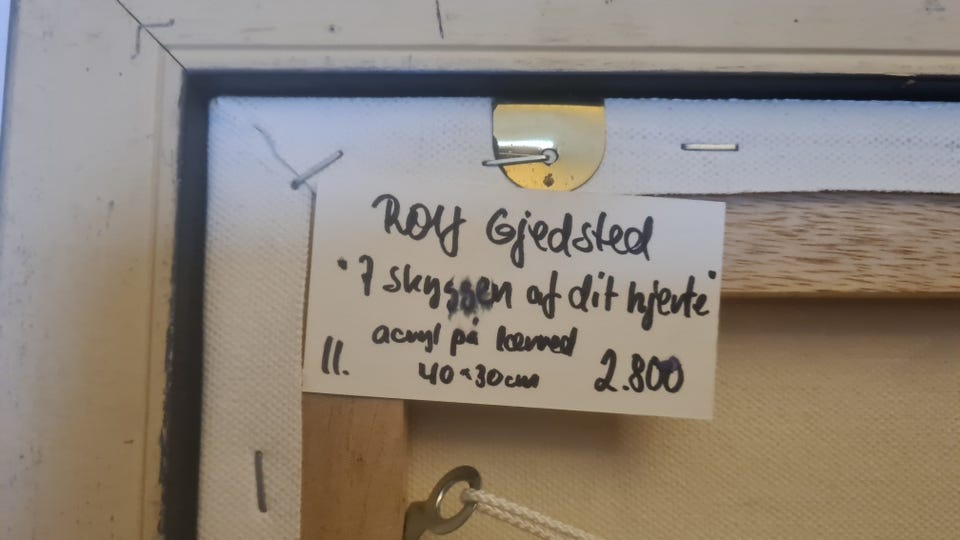 Roy Gjedsted
"I skyggen af dit hjerte"
acryl på lærred
11. 40 x 30 cm 2.800